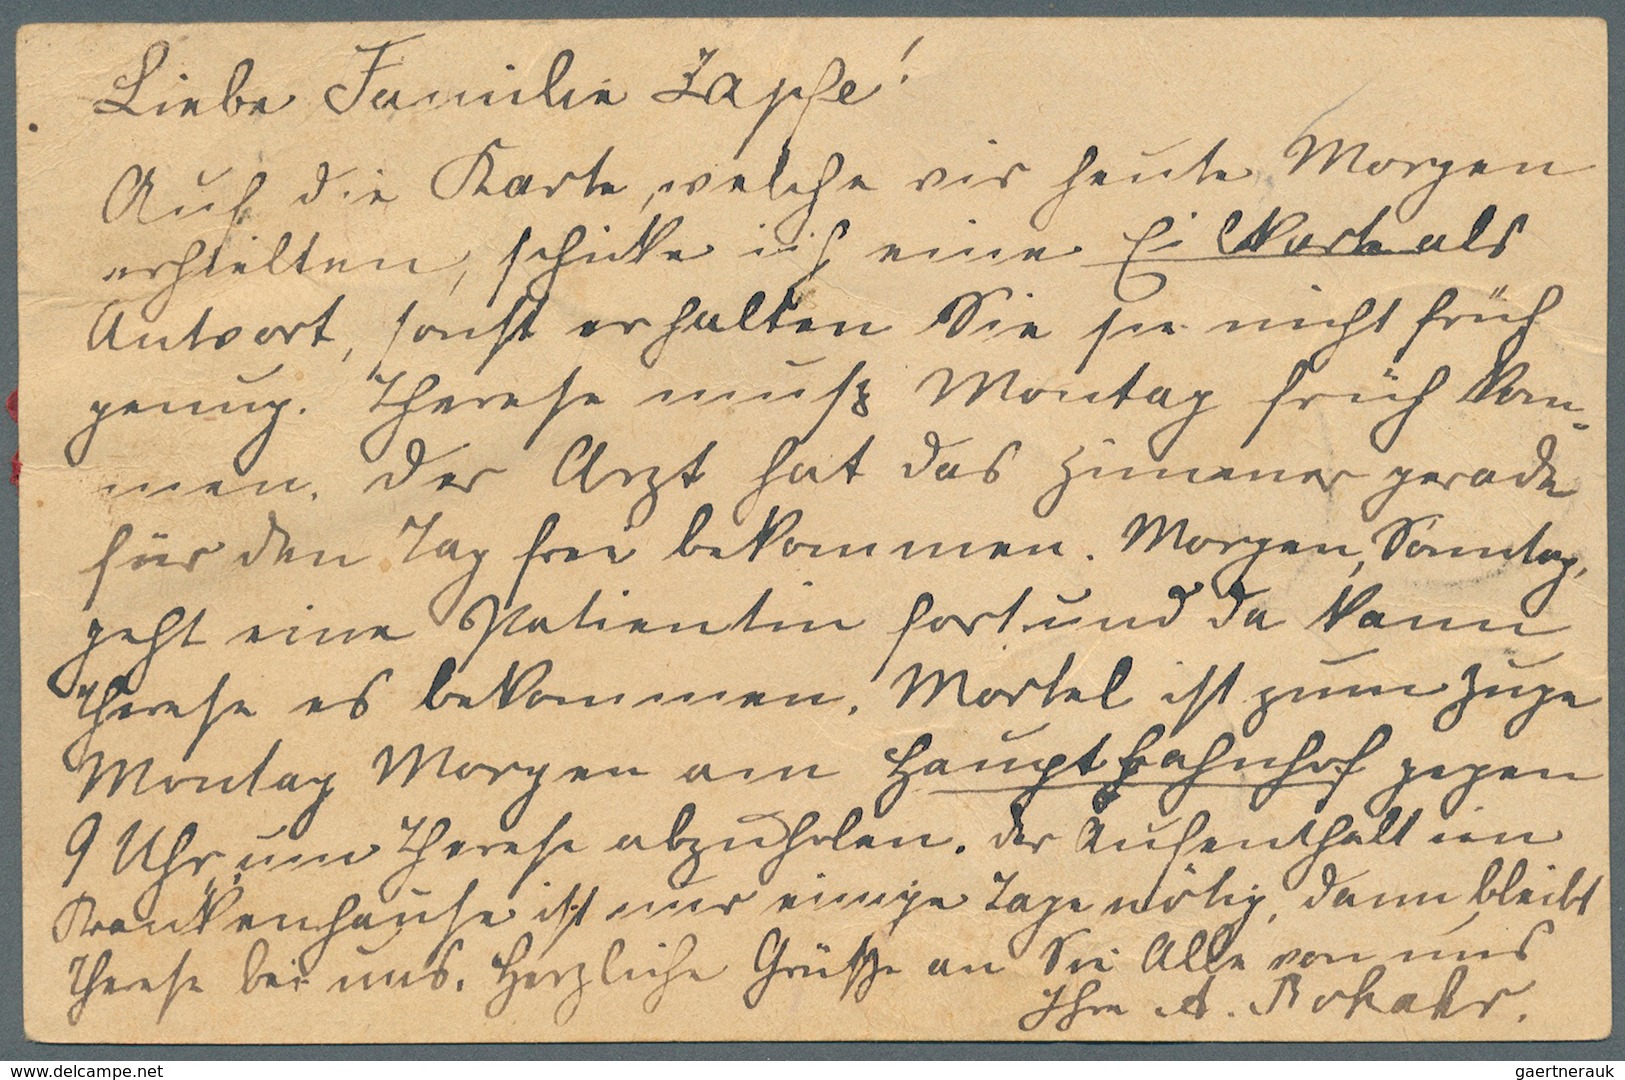 Liebe Familie Zapfe!
Auf die Karte, welche wir heute Morgen
erhielten, schicke ich eine Eilkarte als
Antwort, sonst erhalten Sie sie nicht früh
genug. Therese muß Montag früh kom-
men. Der Arzt hat das Zimmer gerade
für den Tag frei bekommen. Morgen, Sonntag,
geht eine Patientin fort und da kann
Therese es bekommen. Martel ist zum Zuge
Montag Morgen am Hauptbahnhof gegen
9 Uhr, um Therese abzuholen. Der Aufenthalt im
Krankenhause ist nur einige Tage nötig, dann bleibt
Therese bei uns. Herzliche Grüße an Sie Alle von uns
Ihre A.
www.delcampe.net
gaertnerauk